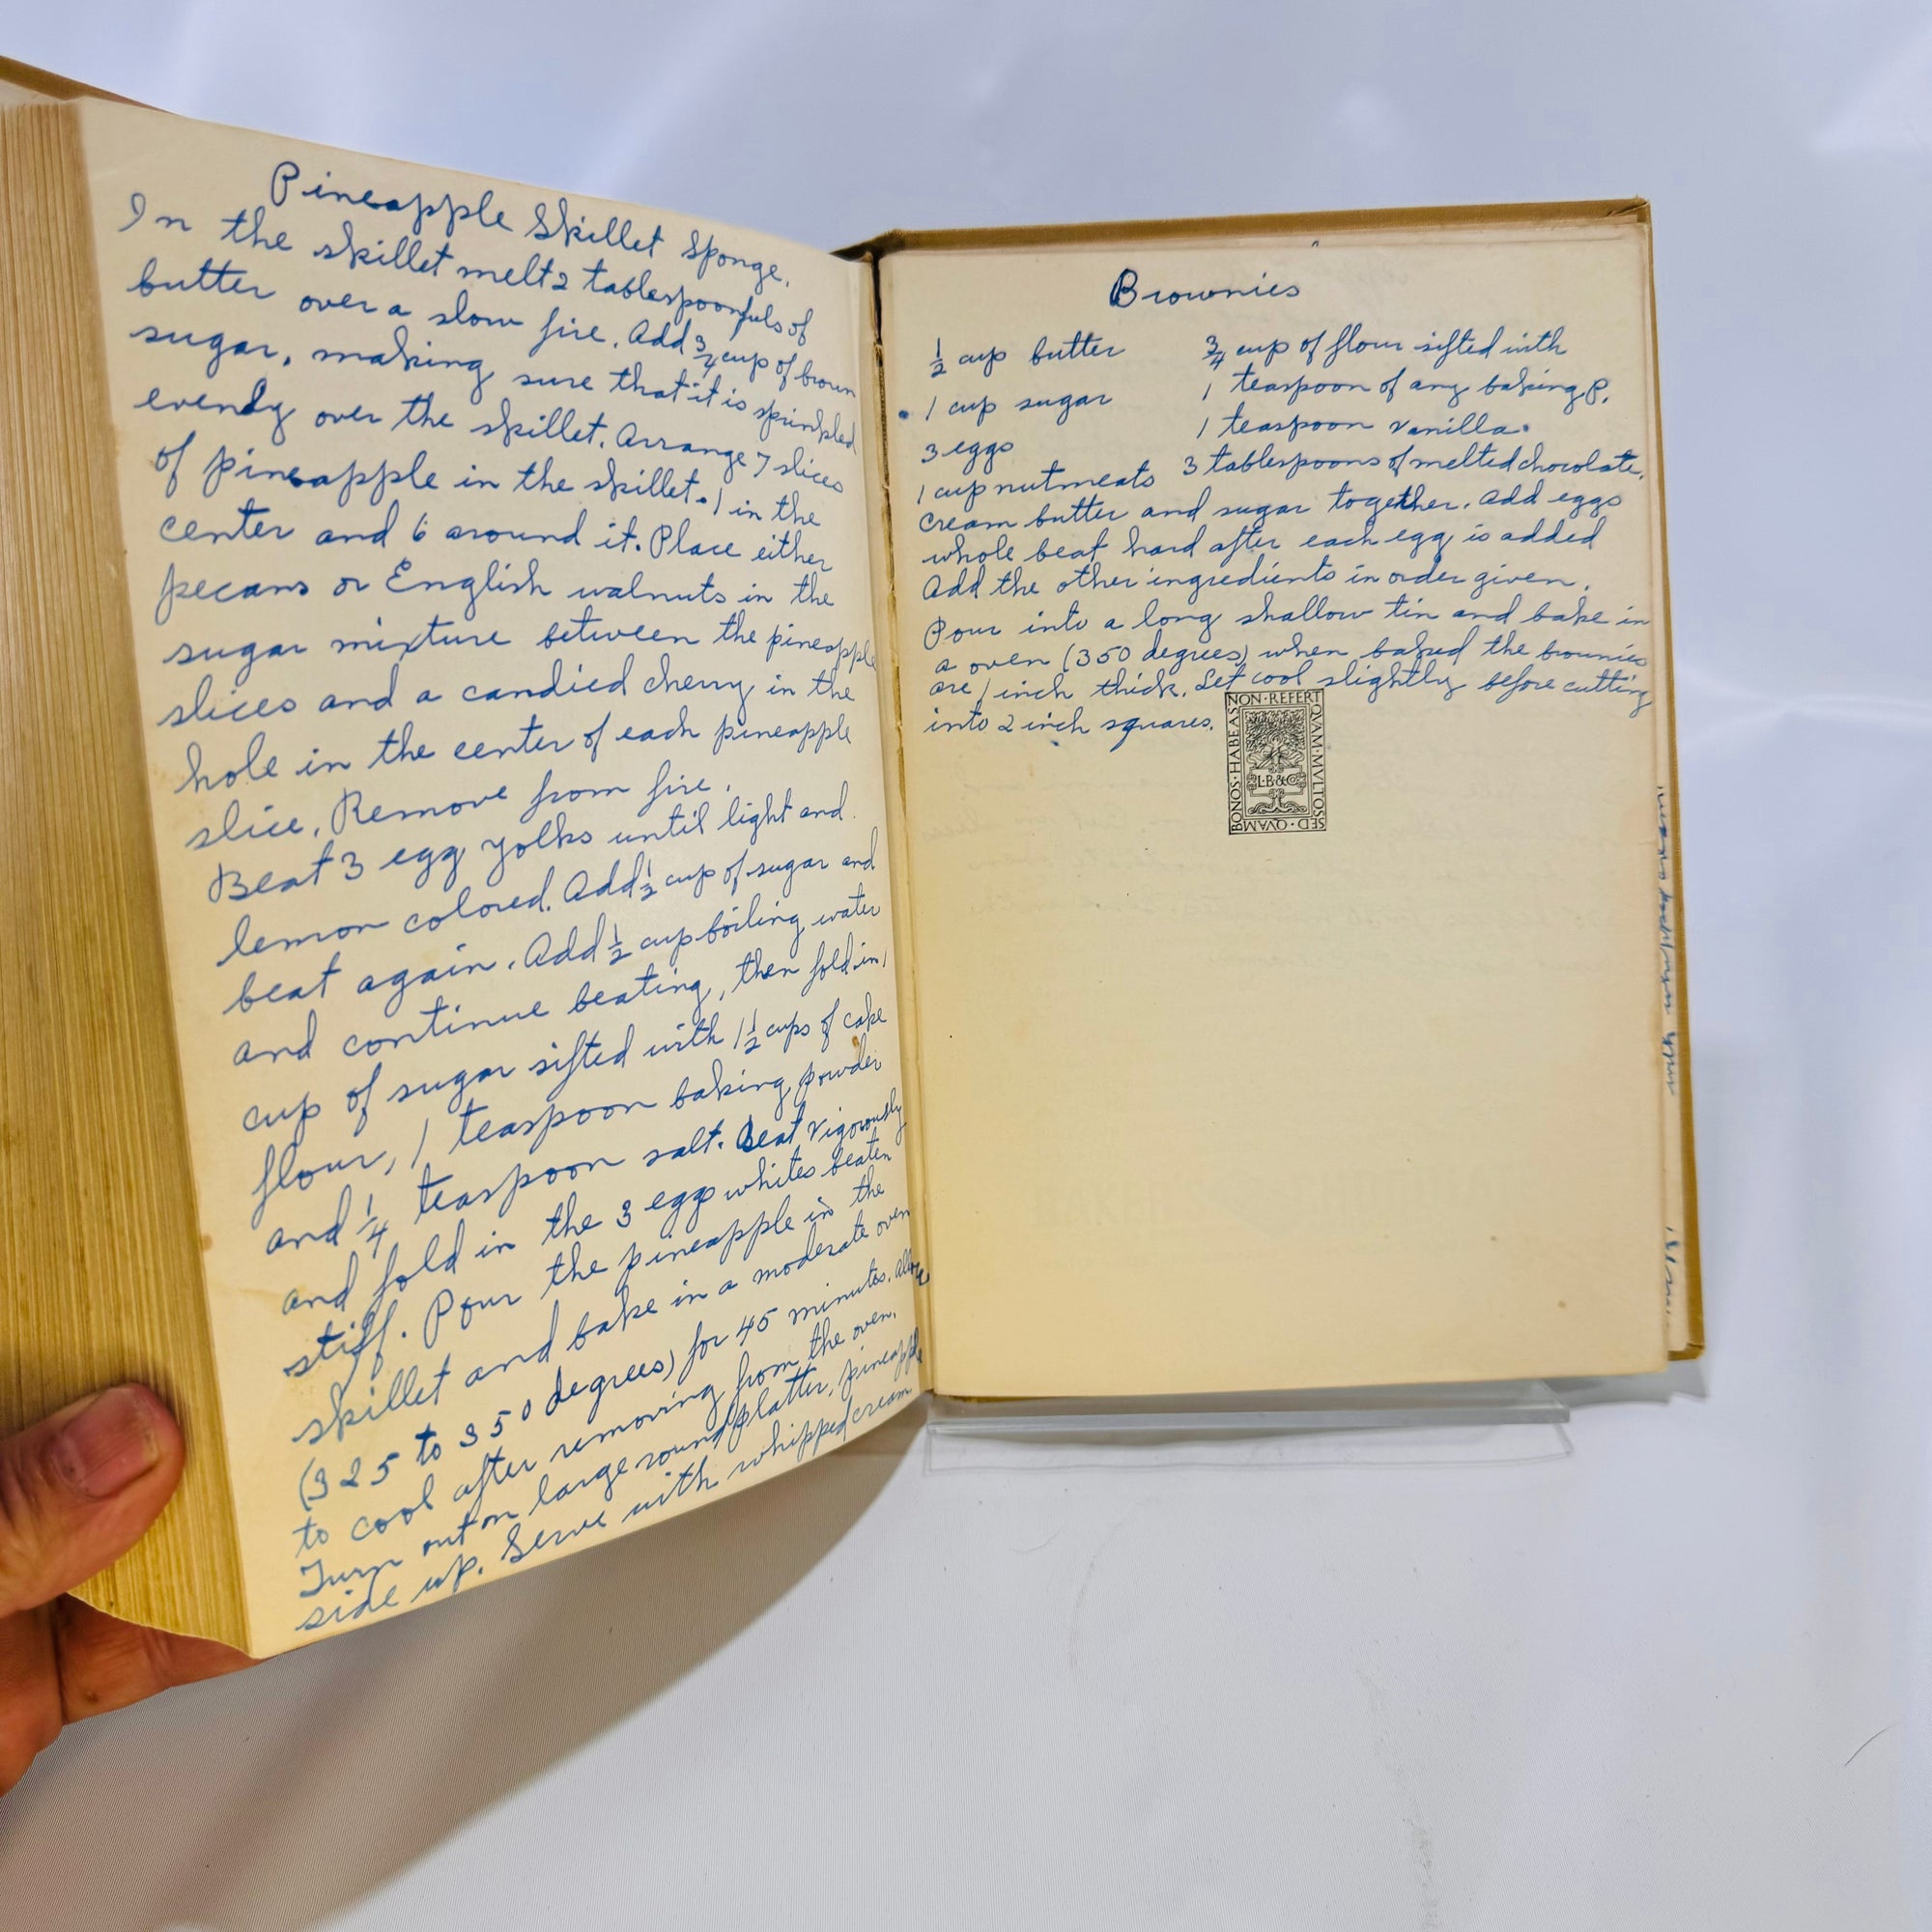 Pineapple Skillet Sponge.
In the skillet melt 2 tablespoonfuls of
butter over a slow fire. Add 3/4 cup of brown
sugar, making sure that it is sprinkled
evenly over the skillet. Arrange 7 slices
of pineapple in the skillet. 1 in the
center and 6 around it. Place either
pecans or English walnuts in the
sugar mixture between the pineapple
slices and a candied cherry in the
hole in the center of each pineapple
slice. Remove from fire.
Beat 3 egg yolks until light and
lemon colored. Add 1/2 cup of sugar and
beat again. Add 1/2 cup boiling water
and continue beating, then fold in 1
cup of sugar sifted with 1 1/2 cups of cake
flour, 1 teaspoon baking powder
and 1/4 teaspoon salt. Beat vigorously
and fold in the 3 egg whites beaten
stiff. Pour the pineapple in the
skillet and bake in a moderate oven
(325 to 350 degrees) for 45 minutes. Allow
to cool after removing from the oven.
Turn out on large round platter, pineapple
side up. Serve with whipped cream.
Brownies
1/2 cup butter 3/4 cup of flour sifted with
1 cup sugar 1 teaspoon of any baking P.
3 eggs 1 teaspoon vanilla.
1 cup nutmeats 3 tablespoons of melted chocolate.
Cream butter and sugar together. Add eggs
whole beat hard after each egg is added
Add the other ingredients in order given.
Pour into a long shallow tin and bake in
a oven (350 degrees) when baked the brownies
are 1 inch thick. Let cool slightly before cutting
into 2 inch squares.
NON·REFERT
QVAM·MVLTOS
SED·QVAM
BONOS·HABEAS
L·B·&Co
with whipped cream